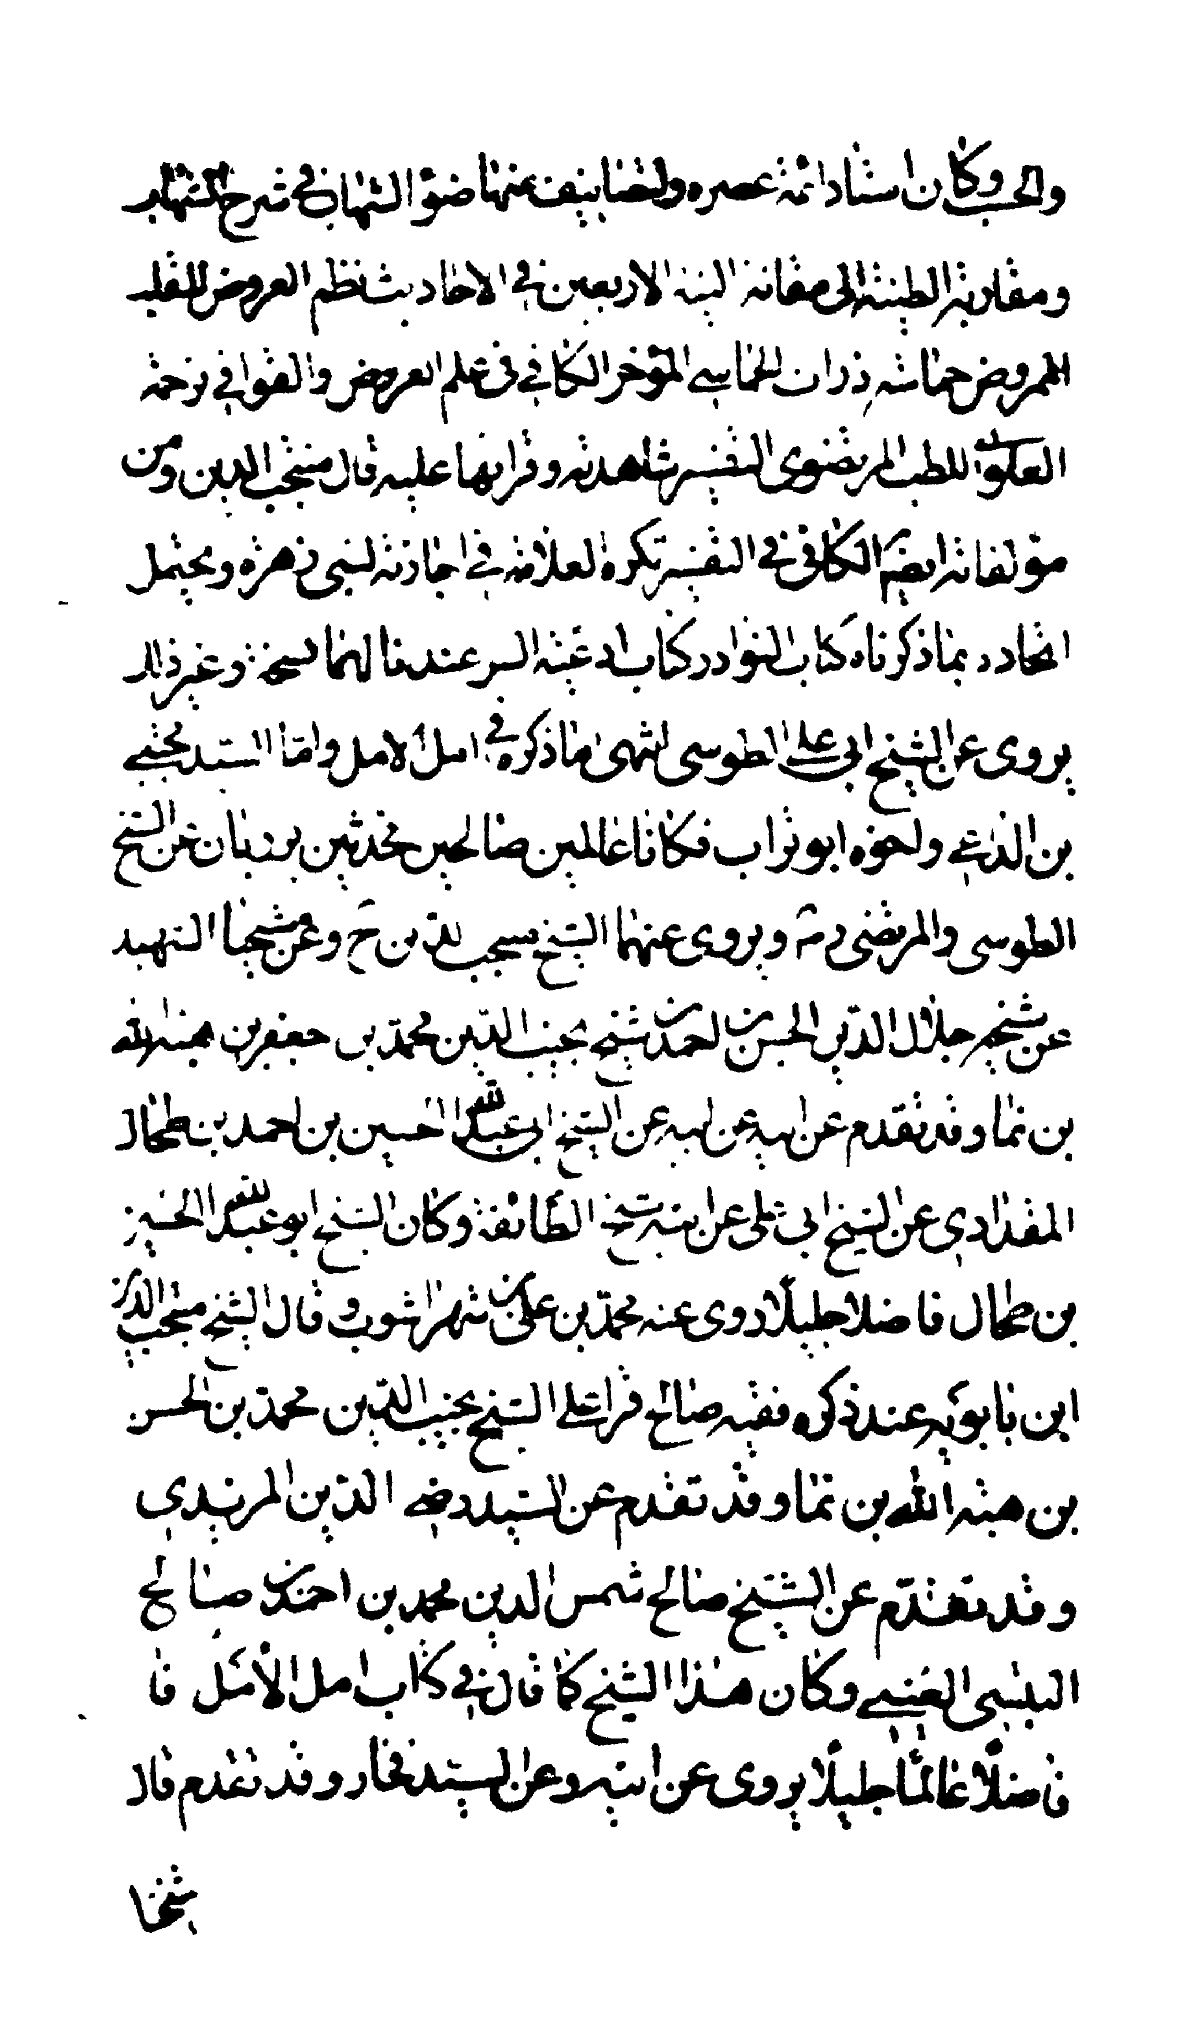 والحسب وكان استاد ائمة عصره وله تصانيف منها ضوء الشهاب في شرح الشهاب
ومقاربة الطيبة الى مقانة النية الاربعين في الاحاديث نظم العروض للقلب
المروض حماسة ذرات الحماسي الموخر الكافي في علم العروض والقوافي ترجمة
العلوي للطب المرتضوي التفسير شاهدته وقرات بعضها عليه قال منتجب الدين ومن
مؤلفاته ايضا الكافي في التفسير ذكره العلامة في اجازته لبني زهرة ويحتمل
اتحاده بما ذكرناه كتاب النوادر كتاب ادعية السر عندنا لهما نسخة وغير ذلك
يروي عن الشيخ ابي علي الطوسي انتهى ما ذكره في امل الامل واما السيد مجتبى
بن الداعي واخوه ابو تراب فكانا عالمين صالحين محدثين يرويان عن الشيخ
الطوسي والمرتضى ره ويروي عنهما الشيخ منتجب الدين ح وعن شيخنا الشهيد
عن شيخه جلال الدين الحسن بن احمد بن شيخ نجيب الدين محمد بن جعفر بن هبة الله
بن نما وقد تقدم عن ابيه عن ابيه عن الشيخ ابي عبد الله الحسين بن احمد بن طحال
المقدادي عن الشيخ ابي علي عن ابيه شيخ الطائفة وكان الشيخ ابو عبد الله الحسين
بن طحال فاضلا جليلا روى عنه محمد بن علي بن شهراشوب وقال الشيخ منتجب الدين
ابن بابويه عند ذكره فقيه صالح قرا على الشيخ نجيب الدين محمد بن الحسن
بن هبة الله بن نما وقد تقدم عن السيد رضي الدين المرندي
وقد تقدم عن الشيخ صالح شمس الدين محمد بن احمد بن صالح
السيبي القسيني وكان هذا الشيخ كما قال في كتاب امل الأمل فا
فاضلا عالما جليلا يروي عن ابيه وعن السيد فخار وقد تقدم قال
شيخنا